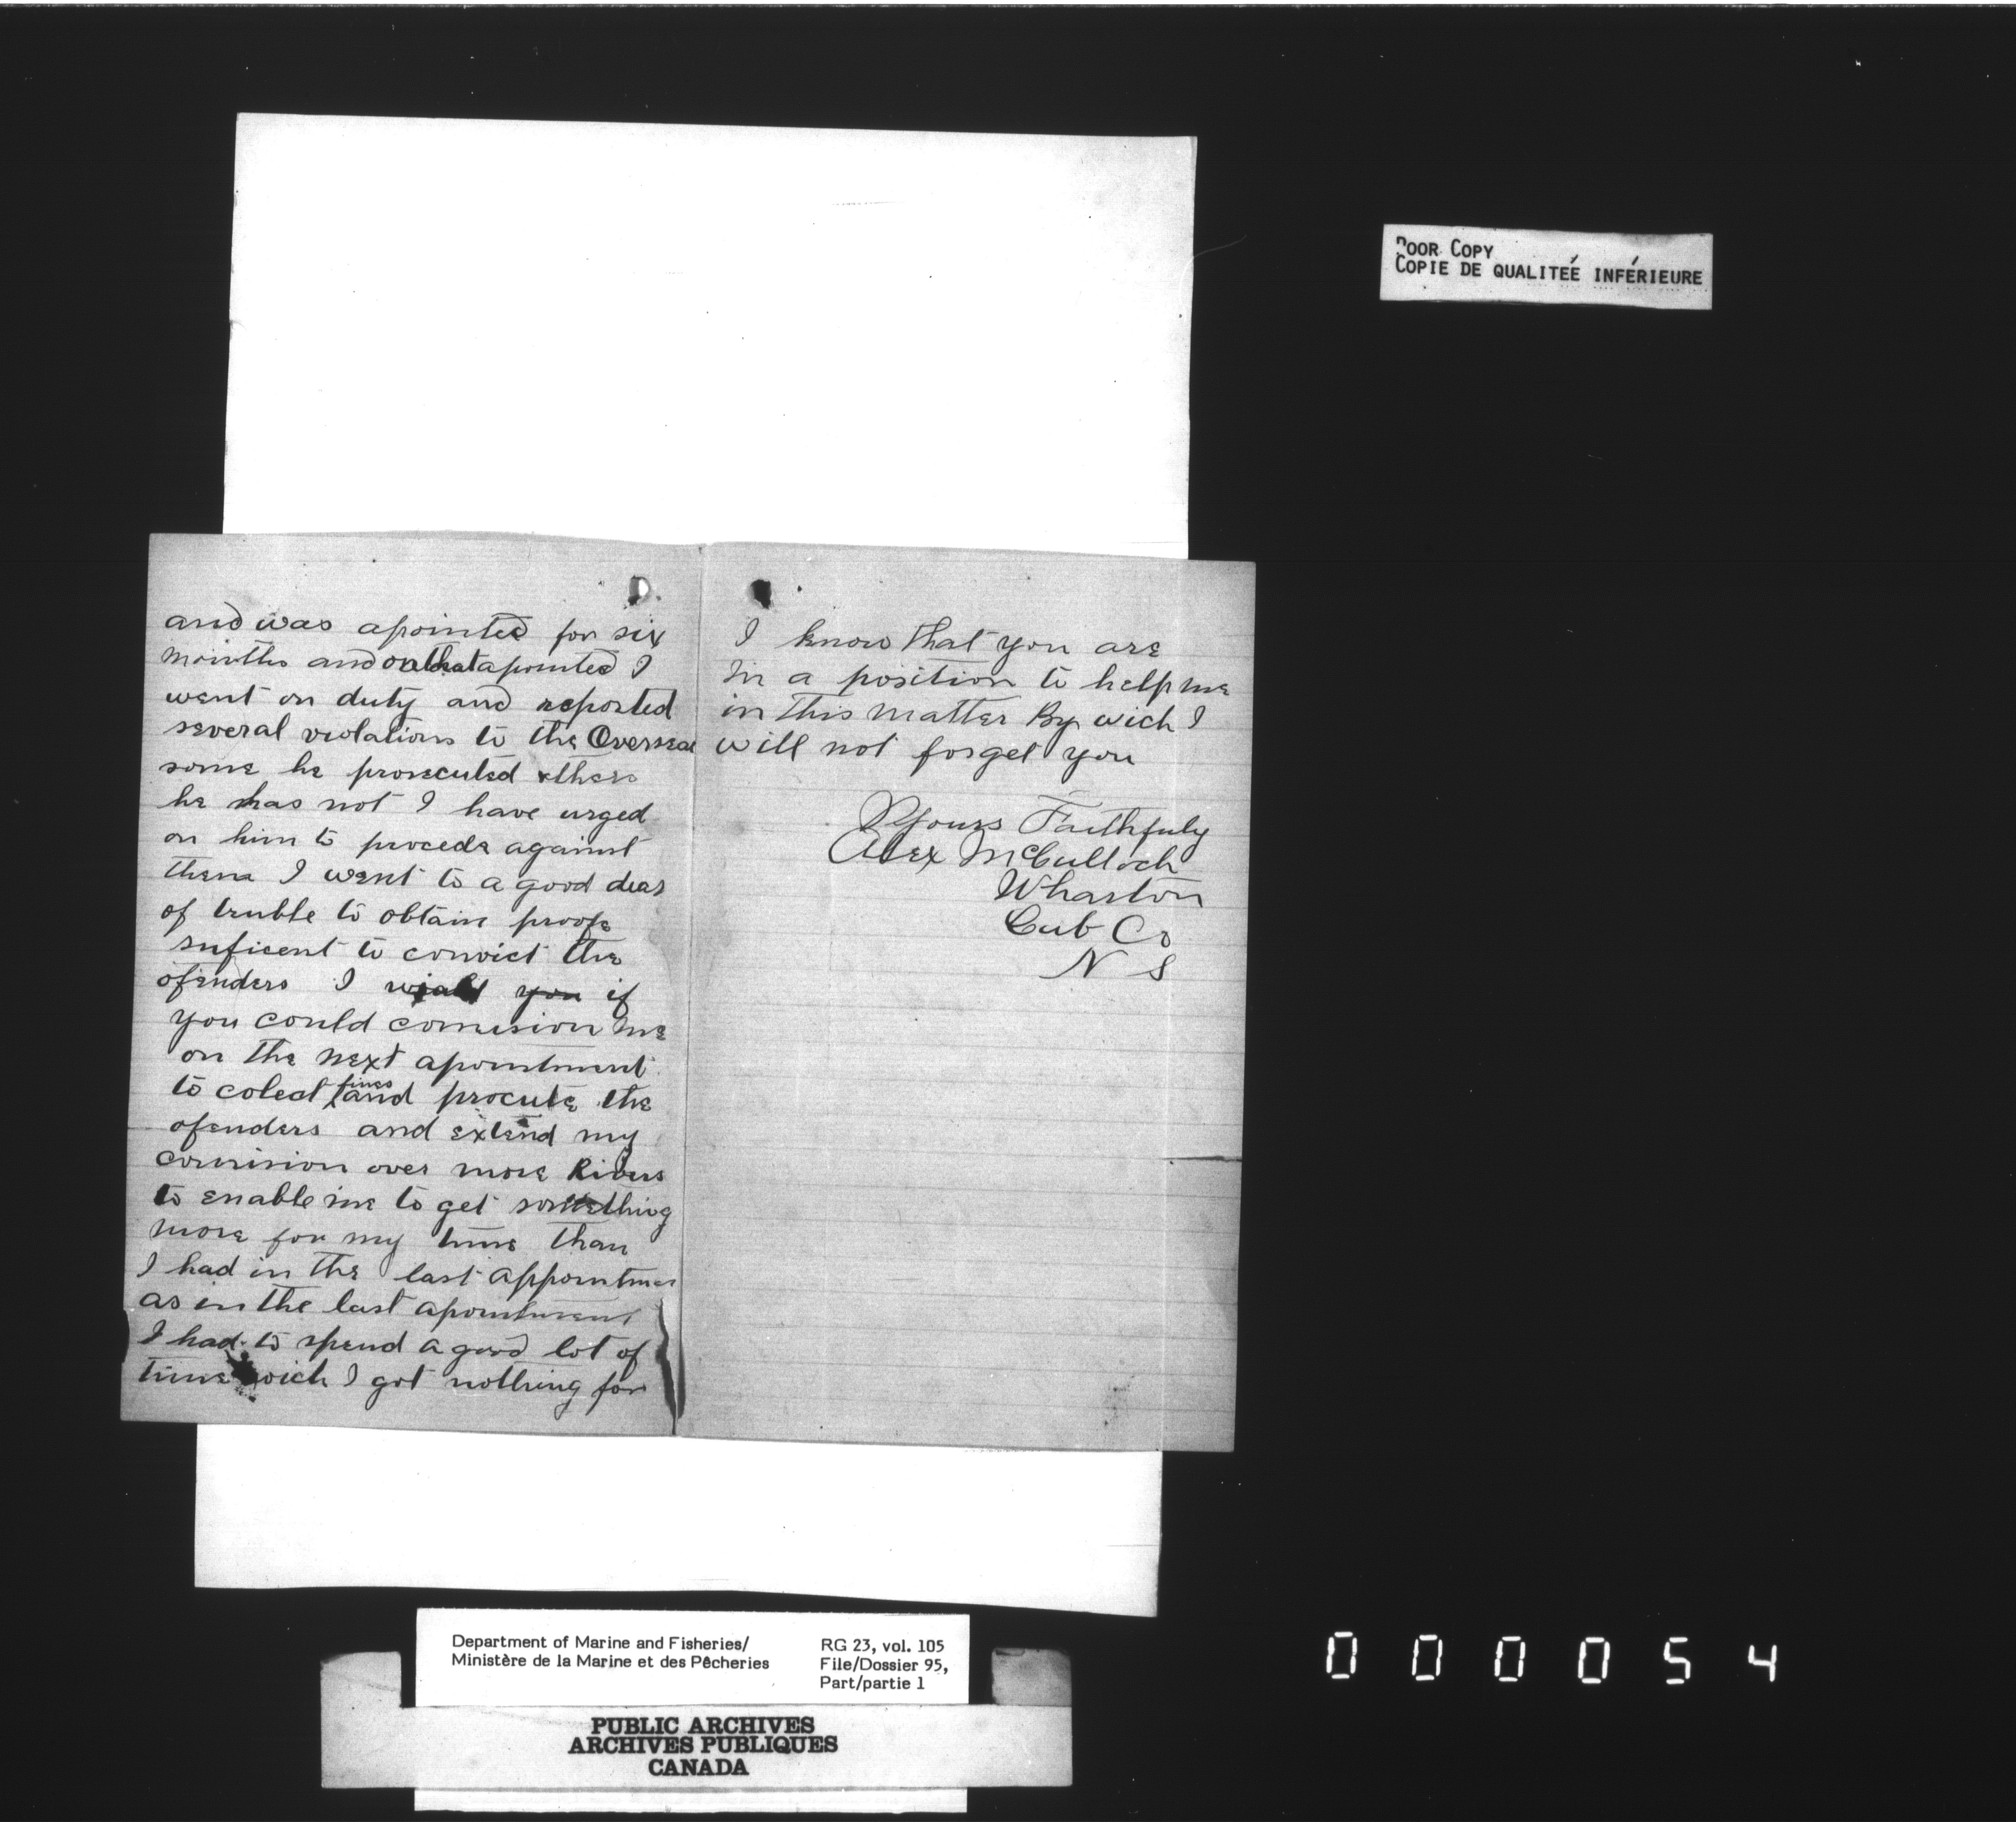 POOR COPY
COPIE DE QUALITEÉ INFÉRIEURE
and was apointed for six
months and on that apointed I
went on duty and reported
several violations to the Overseer
some he prosecuted others
he has not I have urged
on him to procede against
them I went to a good deal
of truble to obtain proofs
suficent to convict the
ofenders I you if
you could comision me
on the next apointment
to colect fines and procute the
ofenders and extend my
comision over more Rivers
to enable me to get something
more for my time than
I had in the last appointmen
as in the last apointment
I had to spend a good lot of
time wich I got nothing for
I know that you are
in a position to help me
in this matter By wich I
will not forget you
Yours Faithfuly
Alex McCulloch
Wharton
Cub Co
N S
Department of Marine and Fisheries/
Ministère de la Marine et des Pêcheries
RG 23, vol. 105
File/Dossier 95,
Part/partie 1
PUBLIC ARCHIVES
ARCHIVES PUBLIQUES
CANADA
000054